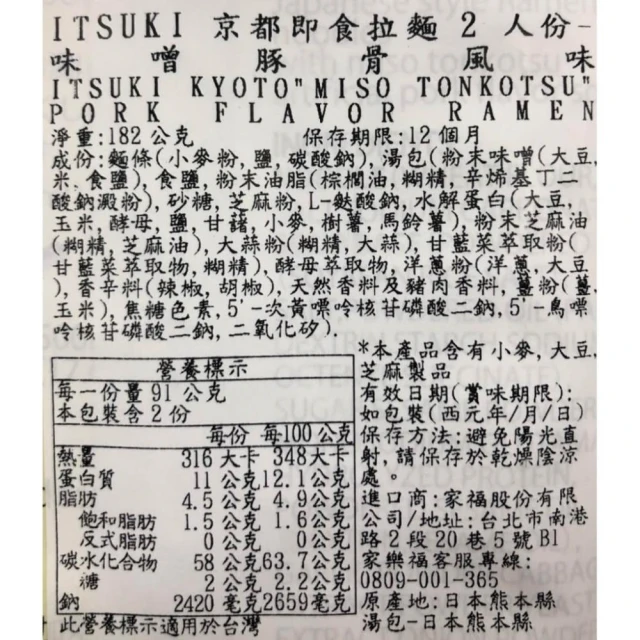 ITSUKI 京都即食拉麵2人份-
味噌豚骨風味
ITSUKI KYOTO"MISO TONKOTSU"
PORK FLAVOR RAMEN
淨重:182公克 保存期限:12個月
成份:麵條(小麥粉,鹽,碳酸鈉),湯包(粉末味噌(大豆,
米,食鹽),食鹽,粉末油脂(棕櫚油,糊精,辛烯基丁二
酸鈉澱粉),砂糖,芝麻粉,L-麩酸鈉,水解蛋白(大豆,
玉米,酵母,鹽,甘藷,小麥,樹薯,馬鈴薯),粉末芝麻油
(糊精,芝麻油),大蒜粉(糊精,大蒜),甘藍菜萃取粉(
甘藍菜萃取物,糊精),酵母萃取物,洋蔥粉(洋蔥,大豆
),香辛料(辣椒,胡椒),天然香料及豬肉香料,薑粉(薑,
玉米),焦糖色素,5'-次黃嘌呤核苷磷酸二鈉,5'-鳥嘌
呤核苷磷酸二鈉,二氧化矽).
營養標示
每一份量91公克
本包裝含2份
每份 每100公克
熱量 316大卡 348大卡
蛋白質 11公克 12.1公克
脂肪 4.5公克 4.9公克
飽和脂肪 1.5公克 1.6公克
反式脂肪 0公克 0公克
碳水化合物 58公克 63.7公克
糖 2公克 2.2公克
鈉 2420毫克 2659毫克
此營養標示適用於台灣
*本產品含有小麥,大豆,
芝麻製品
有效日期(賞味期限):
如包裝(西元年/月/日)
保存方法:避免陽光直
射,請保存於乾燥陰涼
處。
進口商:家福股份有限
公司/地址:台北市南港
路2段20巷5號B1
家樂福客服專線:
0809-001-365
原產地:日本熊本縣
湯包-日本熊本縣